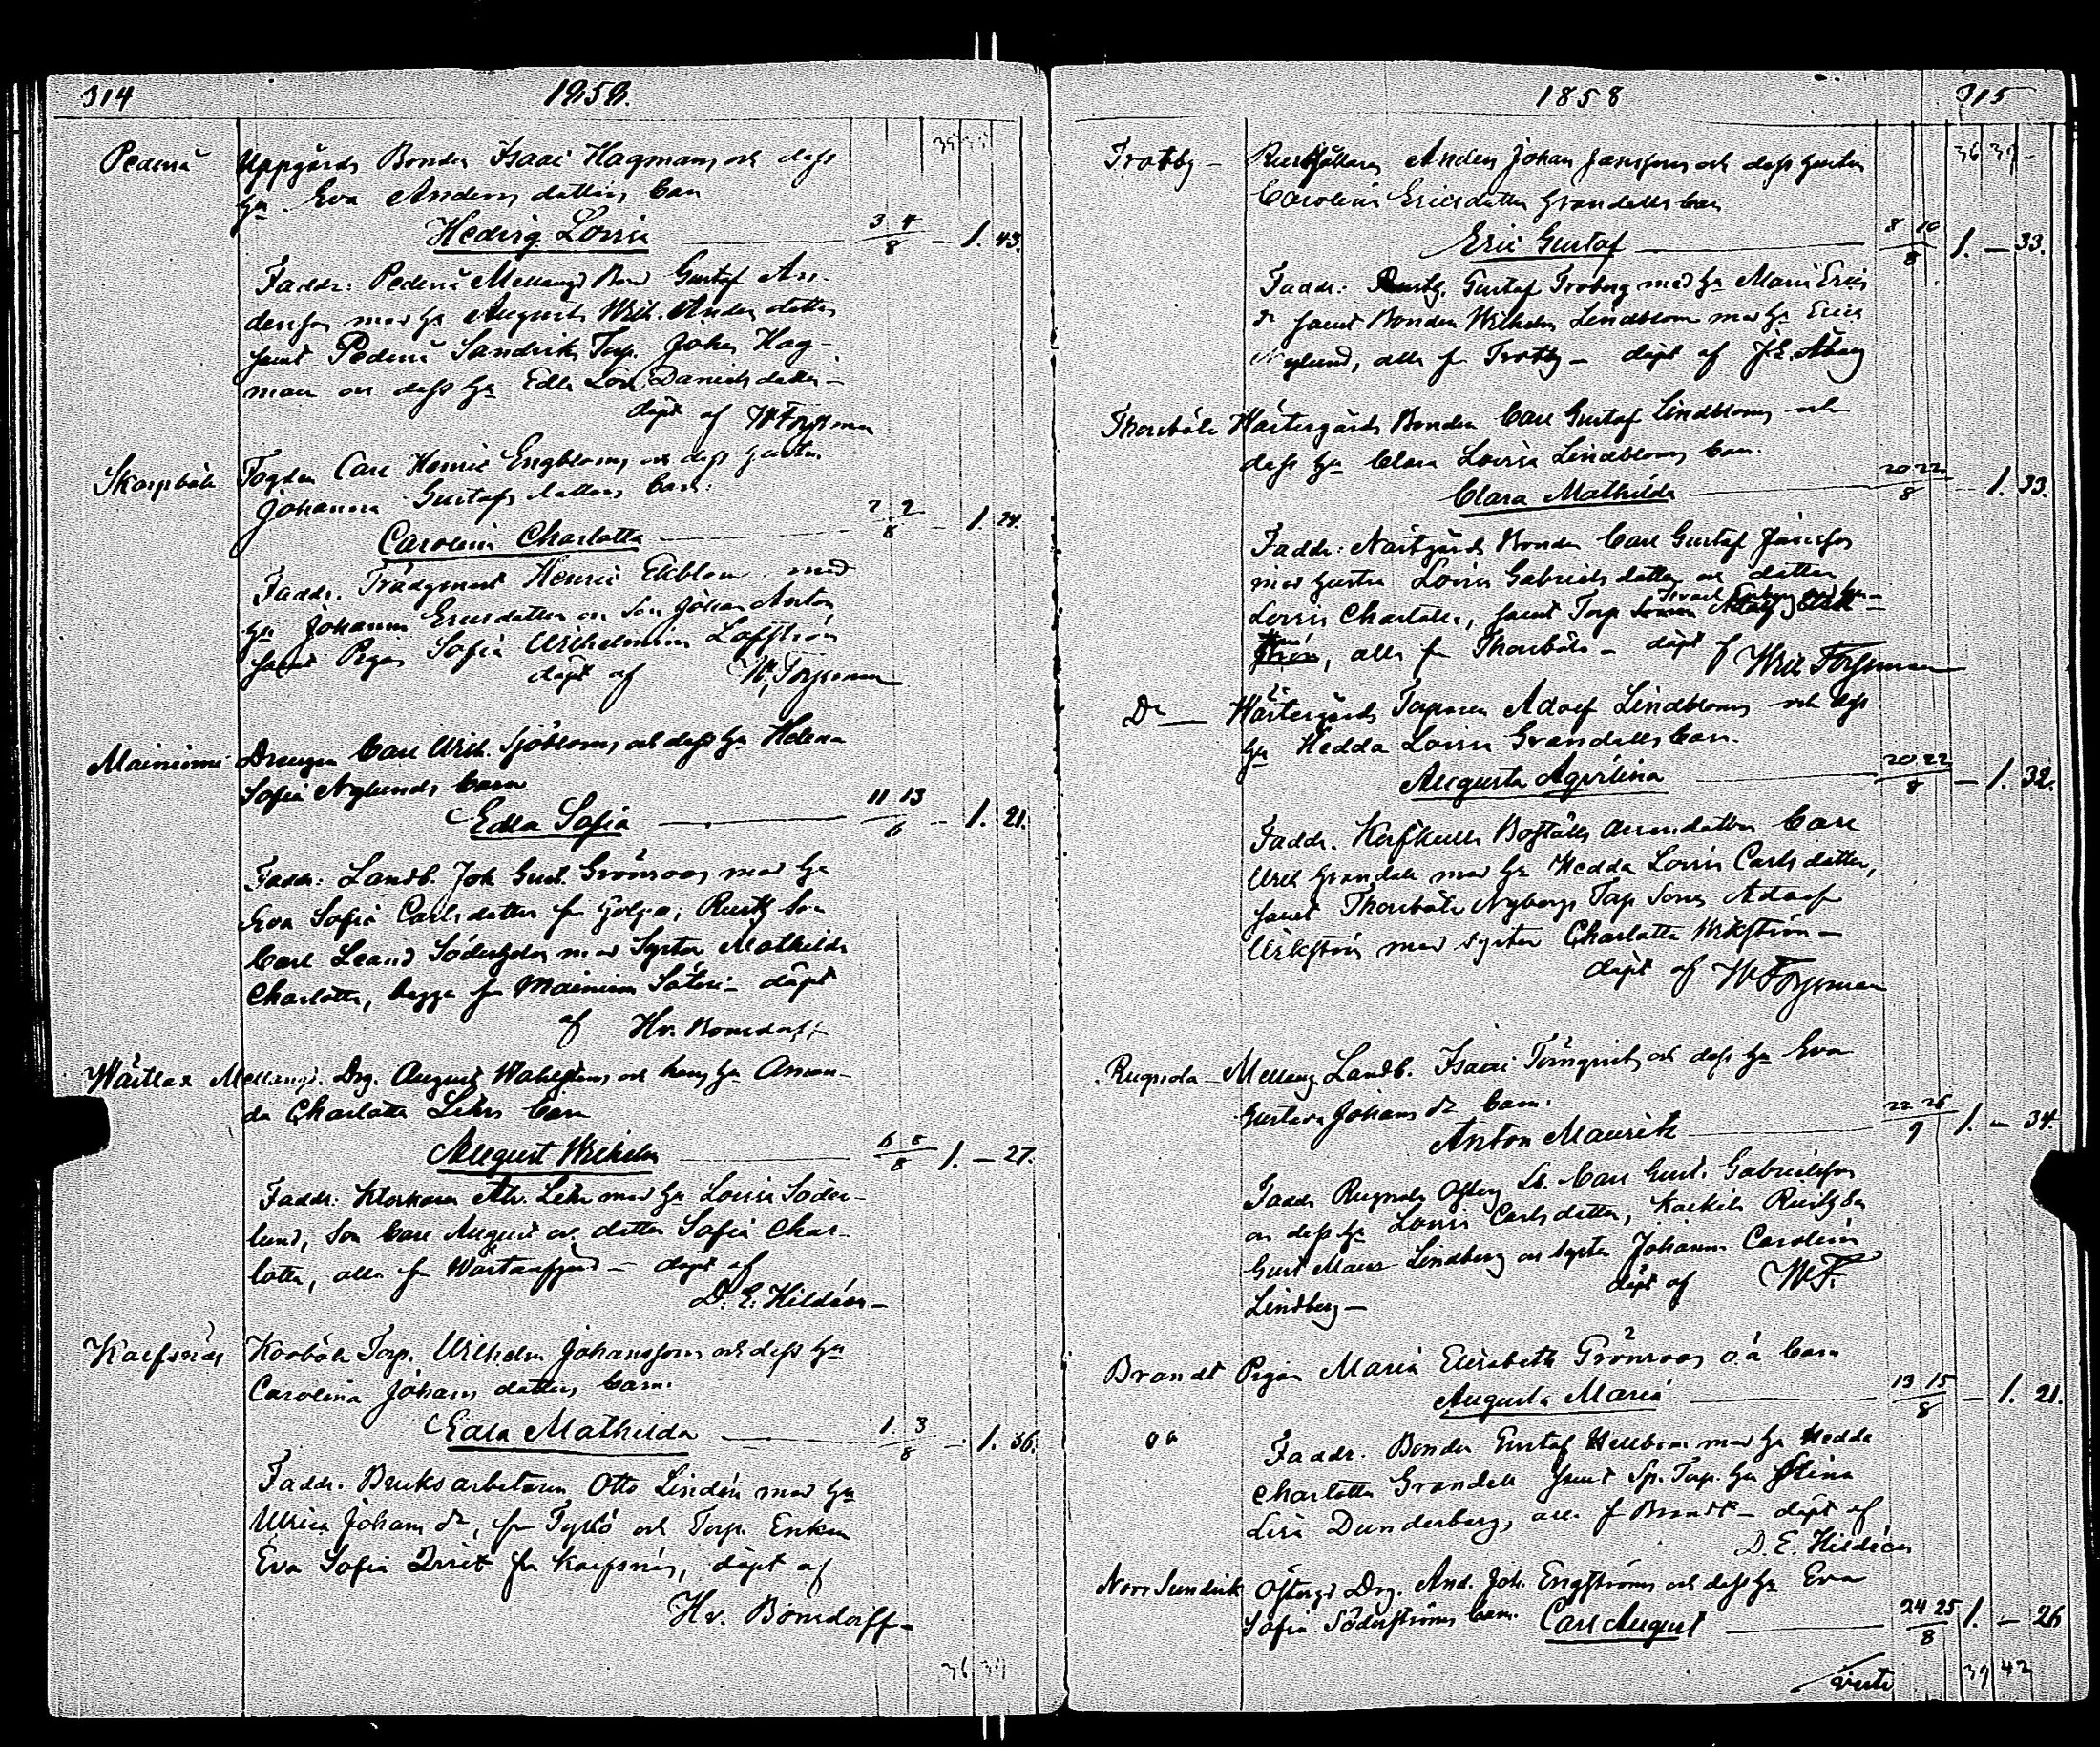 314
1858.
Pederså Uppgårds Bonden Isaac Hagmans och dess
hu Eva Anders datters barn
Hedvig Lovisa 3 4 / 8 — 1. 43.
Faddr: Pederså Mellangd Bond Gustaf An-
dersson med hu Augusta Wilh. Anders datter
samt Pederså Sandvik Torp. Johan Hag-
man och dess hu Edla Lov. Danielsdatter —
döpt af W Forssman
Skarpböle Fogden Carl Henric Engbloms och dess hustru
Johanna Gustafs datters barn.
Carolina Charlotta 7 9 / 8 — 1. 24.
Faddr. Trädgmäst Henric Ekblom med
hu Johanna Ericsdatter och Son Johan Anton
samt Pigan Sofia Wilhelmina Löfström
döpt af W. Forssman
Mainiemi Drengen Carl Wilh. Sjöbloms och dess hu Helena
Sofia Nylunds barn
Edla Sofia 11 13 / 6 — 1. 21.
Faddr: Landb. Joh Gust. Grönroos med hu
Eva Sofia Carlsdatter fr Höljö; Rusth Son
Carl Leand Söderholm med Syster Mathilda
Charlotta, begge fr Mainiemi Säteri — döpt
af Hr. Bonsdorff
Wärtlax Mellangd. Drg. August Wahlstens och hans hu Aman-
da Charlotta Lehrs barn
August Wilhelm 6 8 / 8 1. — 27.
Faddr: Klockaren Alr. Lehr med hu Lovisa Söder-
lund, Son Carl August och datter Sofia Char-
lotta, alla fr — döpt af
D. E. Hildéen —
Kaefsnäs Korböle Torp. Wilhelm Johanssons och dess hu
Carolina Johans datters barn.
Edla Mathilda 1. 3 / 8 — 1. 36.
Faddr. Bruksarbetaren Otto Lindén med hu
Ulrica Johans dr, fr Tyskö och Torp. Enkan
Eva Sofia Qvist fr Kaefsnäs, döpt af
Hr. Bonsdorff —
36 39
1858
315
36 39
Trotby — Rusthållaren Anders Johan Janssons och dess hustru
Carolina Ericsdatter Grandells barn
Eric Gustaf 8 10 / 8 1. — 33.
Faddr: Rusth. Gustaf Troberg med hu Maria Erics
dr samt Bonden Wilhelm Lindblom med hu Erica
Nylund, alla fr Trotby — döpt af J. E. Åberg
Thorsböle Wästergårds Bonden Carl Gustaf Lindbloms och
dess hu Clara Lovisa Lindbloms barn.
Clara Mathilda 20 22 / 8 1. 33.
Faddr: Nästgårds Bonden Carl Gustaf Jansson
med hustru Lovisa Gabriels datter och datter
Lovisa Charlotta, samt Torp Sonen Adolf Wik-
ström, alla fr Thorsböle — döpt af Wilh Forssman
Do — Wästergårds Torparen Adolf Lindbloms och dess
hu Hedda Lovisa Grandells barn.
Augusta Aqvilina 20 22 / 8 — 1. 32.
Faddr. Boställs Arrendator Carl
Wilh Grandell med hu Hedda Lovisa Carls datter,
samt Thorsböle Nybergs Torp Sonen Adolf
Wikström med syster Charlotta Wikström —
döpt af W Forssman
Rugnola — Mellang Landb. Isaac Törnqvists och dess hu Eva
Gustava Johans dr barn.
Anton Mauritz 22 26 / 9 1. — 34.
Faddr Rugnola Österg Lb. Carl Gust. Gabrielsson
och dess hu Lovisa Carlsdatter, Rusth Son
Gust Maur Lindberg och syster Johanna Carolina
Lindberg — döpt af W. F.
Brandt Pigan Maria Elisabeth Grönroos o.ä barn
Augusta Maria 13 15 / 8 — 1. 21.
oä Faddr. Bonden Gustaf Hellbom med hu Hedda
Charlotta Grandell samt Sp. Torp. hu Stina
Lisa Dunderberg, alla fr Brandt — döpt af
D. E. Hildéen
Norr Sundvik Österg Drg. And. Joh. Engströms och dess hu Eva
Sofia Söderströms barn. Carl August 24 25 / 8 1. — 26
verte 39 42